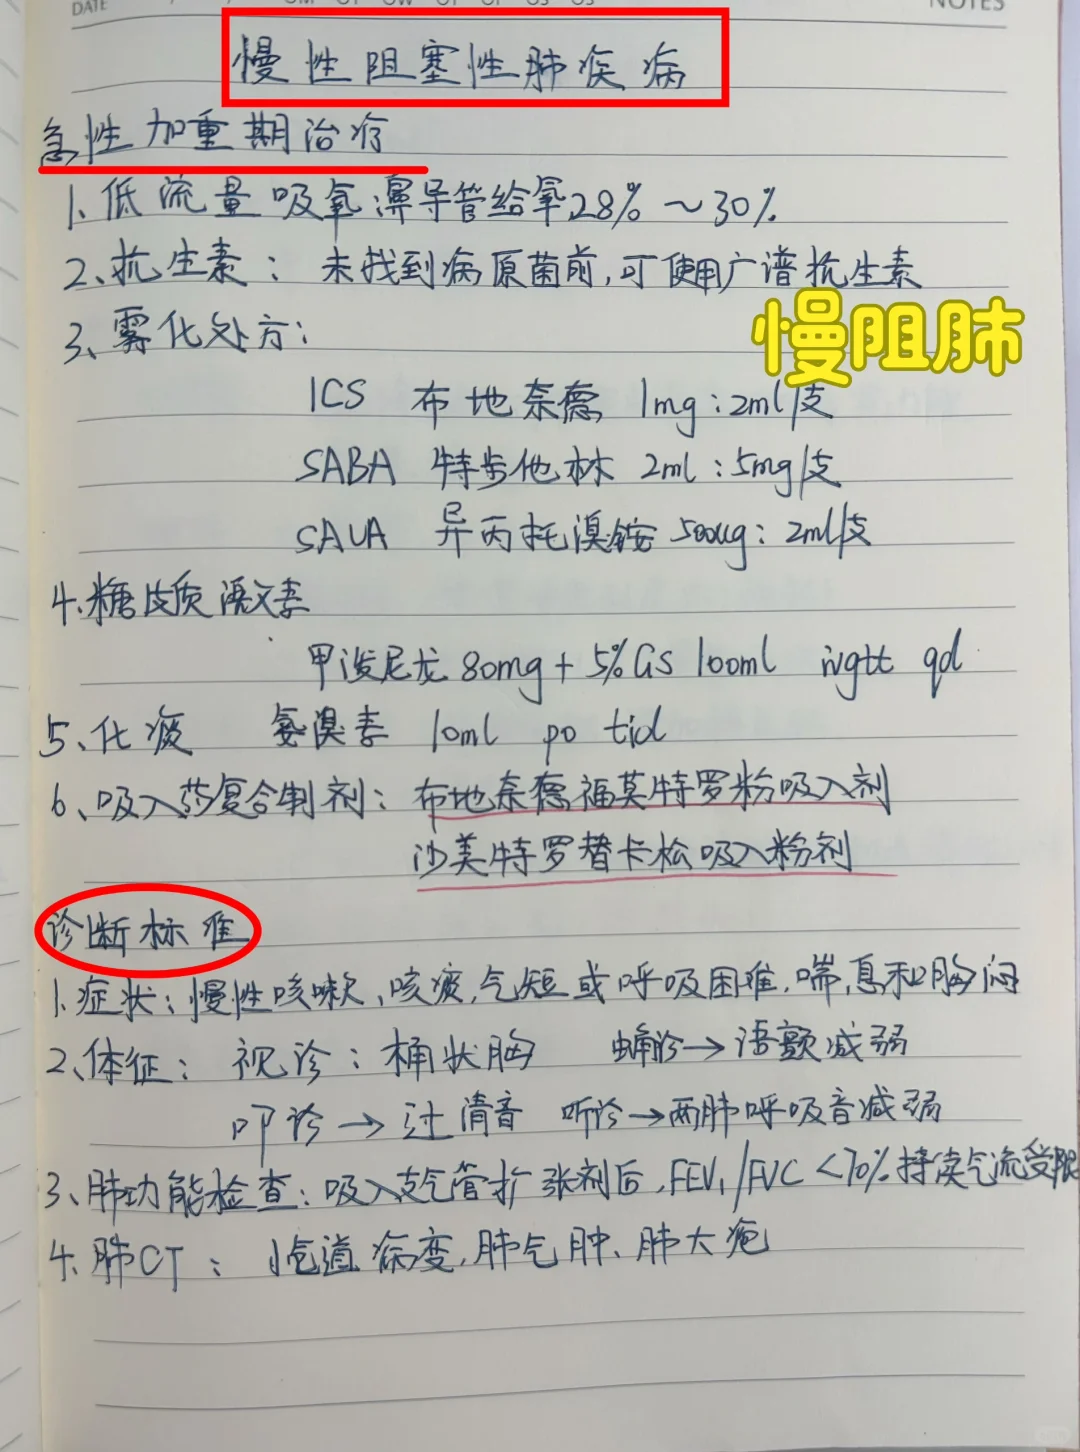 DATE
NOTES
慢性阻塞性肺疾病
急性加重期治疗
1、低流量吸氧 鼻导管给氧28%～30%
2、抗生素：未找到病原菌前,可使用广谱抗生素
慢阻肺
3、雾化处方：
ICS 布地奈德 1mg:2ml/支
SABA 特步他林 2ml:5mg/支
SAMA 异丙托溴铵 500ug:2ml/支
4、糖皮质激素
甲泼尼龙 80mg+5%GS 100ml ivgtt qd
5、化痰 氨溴素 10ml po tid
6、吸入药复合制剂：布地奈德福莫特罗粉吸入剂
沙美特罗替卡松吸入粉剂
诊断标准
1、症状：慢性咳嗽、咳痰,气短或呼吸困难,喘息和胸闷
2、体征：视诊：桶状胸 触诊→语颤减弱
叩诊→过清音 听诊→两肺呼吸音减弱
3、肺功能检查：吸入支气管扩张剂后,FEV₁/FVC<70%持续气流受限
4、肺CT：小气道病变,肺气肿、肺大疱